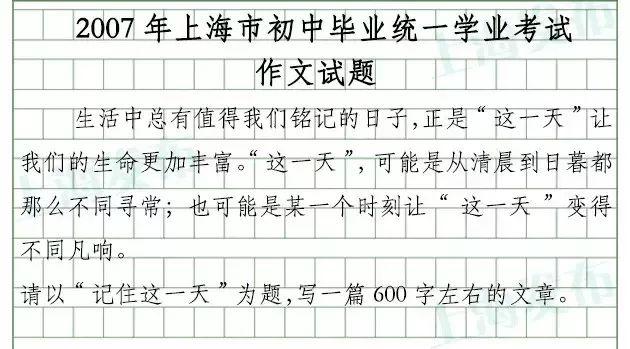 2007 年上海市初中毕业统一学业考试
作文试题
生活中总有值得我们铭记的日子,正是“这一天”让
我们的生命更加丰富。“这一天”, 可能是从清晨到日暮都
那么不同寻常；也可能是某一个时刻让 “ 这一天 ” 变得
不同凡响。
请以“记住这一天”为题,写一篇 600 字左右的文章。
上海发布
上海发布
上海发布